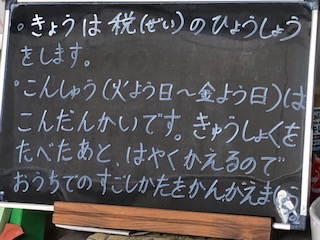 ・きょうは税(ぜい)のひょうしょう
をします。
・こんしゅう(火よう日～金よう日)は
こんだんかいです。きゅうしょくを
たべたあと、はやくかえるので
おうちでのすごしかたをかんがえま